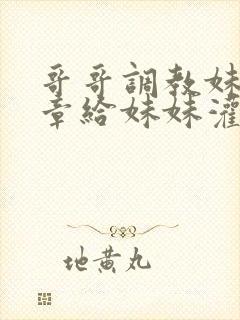 哥哥調教妹
章給妹妹灌
地黄丸